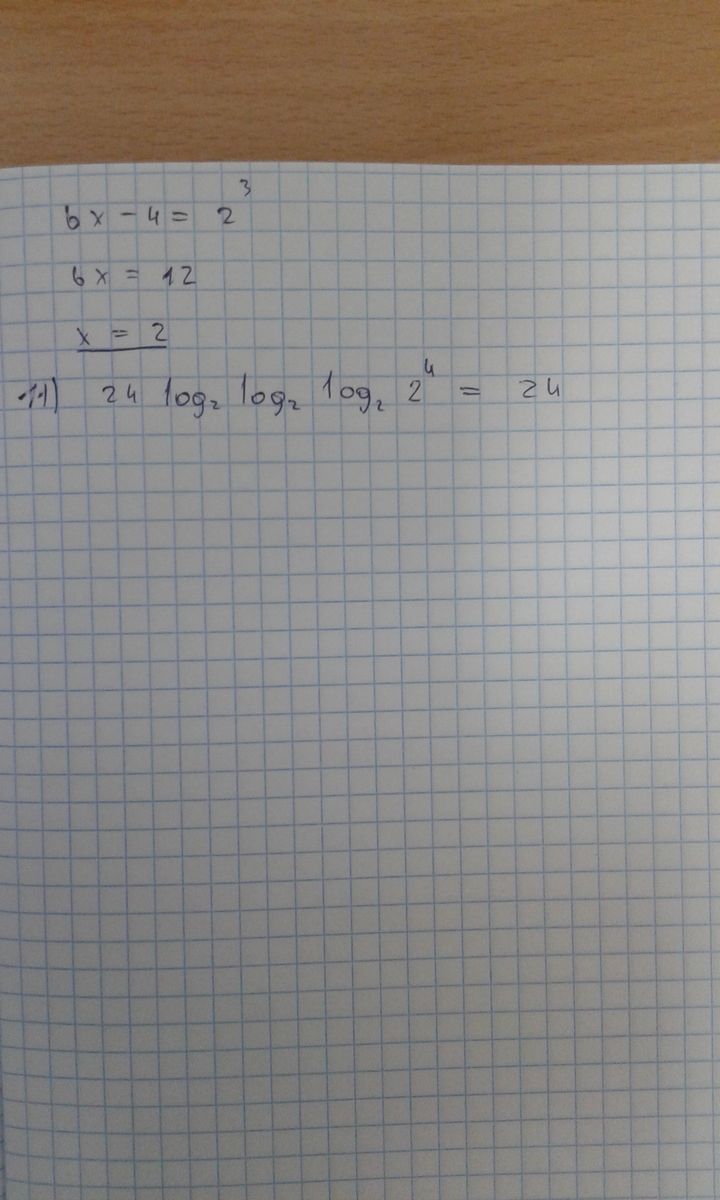 6x - 4 = 2³
6x = 12
x = 2
11) 24 log₂ log₂ log₂ 2⁴ = 24